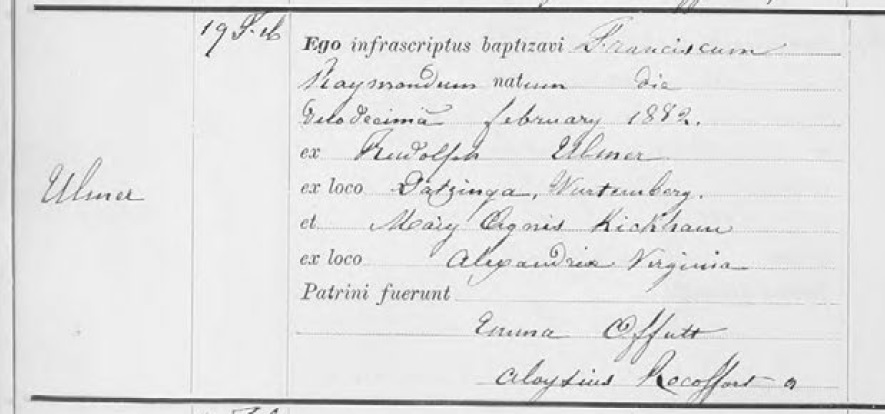 19 Feb
Ego infrascriptus baptizavi Franciscum
Raymondum natum die
duodecimâ february 1882.
ex Rudolph Ulmer
Ulmer
ex loco Datzinga, Wurtemberg.
et Mary Agnis Kickham
ex loco Alexandria Virginia
Patrini fuerunt
Emma Offutt
Aloysius Rocoffort